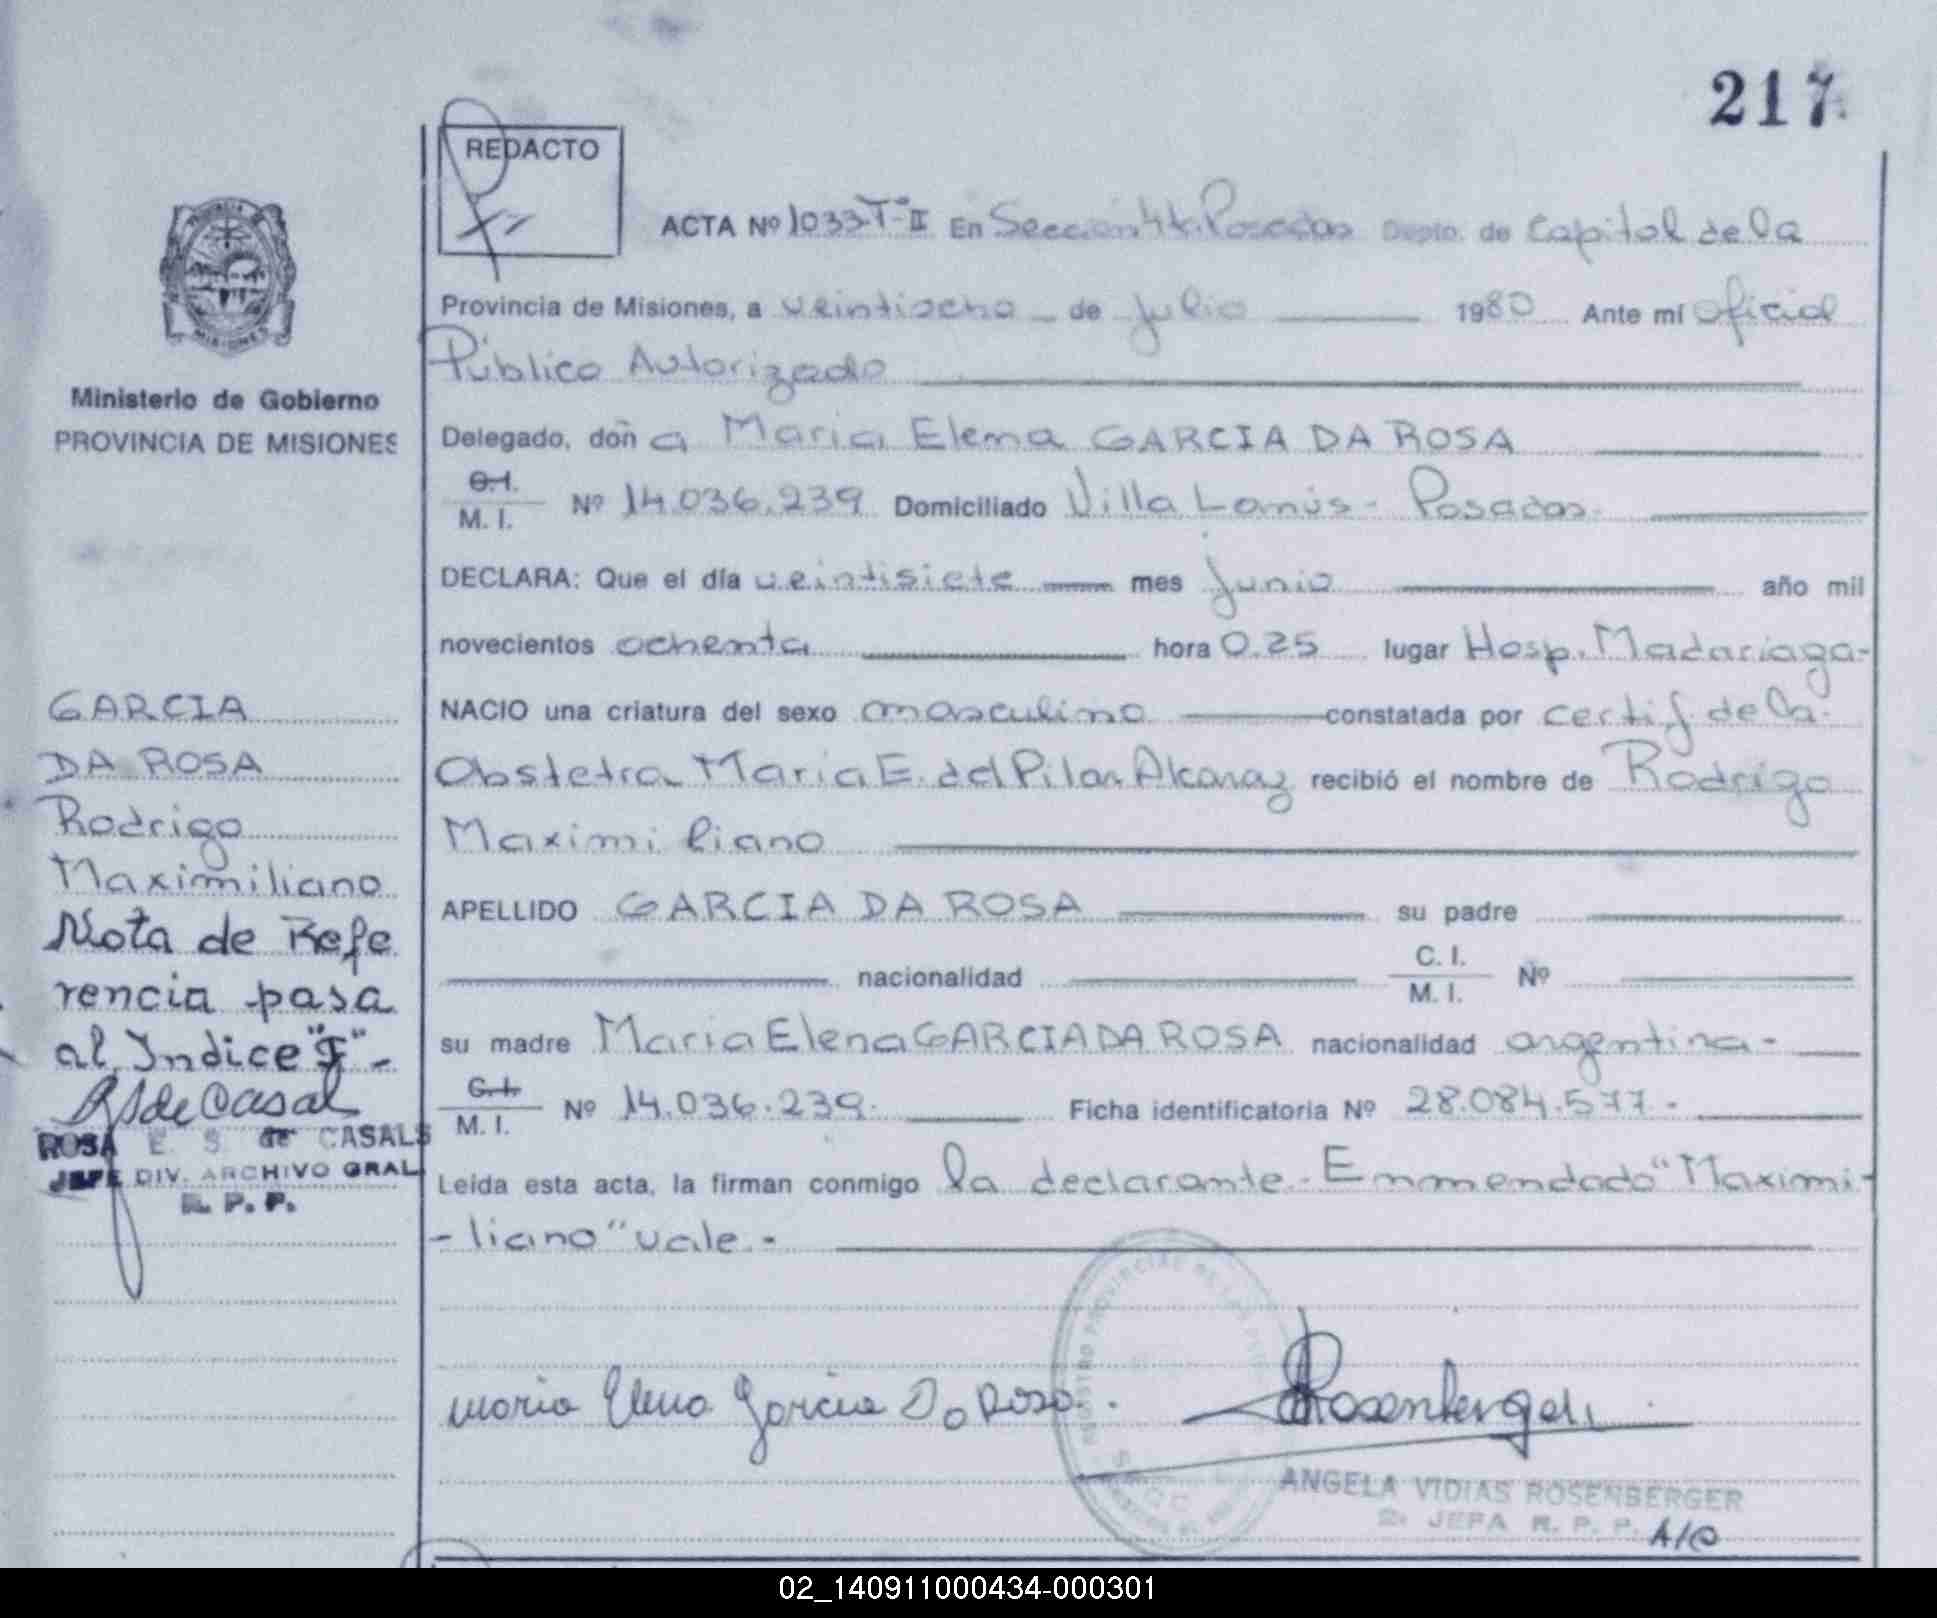 217
REDACTO
ACTA Nº 1033 Tº II En Sección 4ta. Posadas Depto. de Capital de la
Provincia de Misiones, a veintiocho de julio 1980 Ante mí oficial
Público Autorizado
Delegado, doña Maria Elena GARCIA DA ROSA
C.I.
M. I. Nº 14.036.239 Domiciliado Villa Lanús - Posadas.
DECLARA: Que el día veintisiete mes junio año mil
novecientos ochenta hora 0.25 lugar Hosp. Madariaga-
NACIO una criatura del sexo masculino constatada por certif de la
Obstetra Maria E. del Pilar Alcaraz recibió el nombre de Rodrigo
Maximiliano
APELLIDO GARCIA DA ROSA su padre
nacionalidad C. I.
M. I. Nº
su madre Maria Elena GARCIA DA ROSA nacionalidad argentina-
C.I.
M. I. Nº 14.036.239. Ficha identificatoria Nº 28.084.577-
Leída esta acta, la firman conmigo la declarante.- Emmendado "Maximi-
-liano" vale.-
Maria Elena Garcia Da Rosa.
Rosenberger
ANGELA VIDIAS ROSENBERGER
2. JEFA R. P. P. A/C
PROVINCIA DE
MISIONES
Ministerio de Gobierno
PROVINCIA DE MISIONES
GARCIA
DA ROSA
Rodrigo
Maximiliano
Nota de Refe
rencia pasa
al Indice "F"-
RS de Casal
ROSA E. S. de CASALS
JEFE DIV. ARCHIVO GRAL
R. P. P.
REGISTRO PROVINCIAL DE LAS
02_140911000434-000301